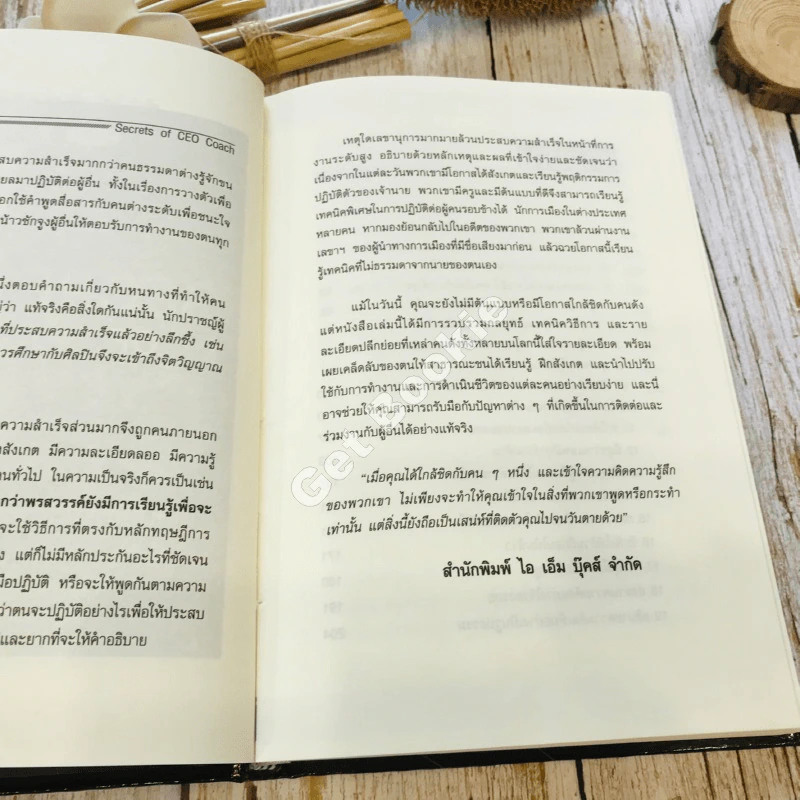 Secrets of CEO Coach
สบความสำเร็จมากกว่าคนธรรมดาต่างรู้จักขน
ยลมาปฏิบัติต่อผู้อื่น ทั้งในเรื่องการวางตัวเพื่อ
อกใช้คำพูดสื่อสารกับคนต่างระดับเพื่อชนะใจ
น้าวชักจูงผู้อื่นให้ตอบรับการทำงานของตนทุก
นึ่งตอบคำถามเกี่ยวกับหนทางที่ทำให้คน
ว่า แท้จริงคือสิ่งใดกันแน่นั้น นักปราชญ์ผู้
ที่ประสบความสำเร็จแล้วอย่างลึกซึ้ง เช่น
วรศึกษากับศิลปินจึงจะเข้าถึงจิตวิญญาณ
ความสำเร็จส่วนมากจึงถูกคนภายนอก
สังเกต มีความละเอียดลออ มีความรู้
นทั่วไป ในความเป็นจริงก็ควรเป็นเช่น
กว่าพรสวรรค์ยังมีการเรียนรู้เพื่อจะ
จะใช้วิธีการที่ตรงกับหลักทฤษฎีการ
ง แต่ก็ไม่มีหลักประกันอะไรที่ชัดเจน
มือปฏิบัติ หรือจะให้พูดกันตามความ
ว่าตนจะปฏิบัติอย่างไรเพื่อให้ประสบ
และยากที่จะให้คำอธิบาย
เหตุใดเลขานุการมากมายล้วนประสบความสำเร็จในหน้าที่การ
งานระดับสูง อธิบายด้วยหลักเหตุและผลที่เข้าใจง่ายและชัดเจนว่า
เนื่องจากในแต่ละวันพวกเขามีโอกาสได้สังเกตและเรียนรู้พฤติกรรมการ
ปฏิบัติตัวของเจ้านาย พวกเขามีครูและมีต้นแบบที่ดีจึงสามารถเรียนรู้
เทคนิคพิเศษในการปฏิบัติต่อผู้คนรอบข้างได้ นักการเมืองในต่างประเทศ
หลายคน หากมองย้อนกลับไปในอดีตของพวกเขา พวกเขาล้วนผ่านงาน
เลขาฯ ของผู้นำทางการเมืองที่มีชื่อเสียงมาก่อน แล้วฉวยโอกาสนี้เรียน
รู้เทคนิคที่ไม่ธรรมดาจากนายของตนเอง
แม้ในวันนี้ คุณจะยังไม่มีต้นแบบหรือมีโอกาสใกล้ชิดกับคนดัง
แต่หนังสือเล่มนี้ได้มีการรวบรวมกลยุทธ์ เทคนิควิธีการ และราย
ละเอียดปลีกย่อยที่เหล่าคนดังทั้งหลายบนโลกนี้ใส่ใจรายละเอียด พร้อม
เผยเคล็ดลับของตนให้สาธารณะชนได้เรียนรู้ ฝึกสังเกต และนำไปปรับ
ใช้กับการทำงานและการดำเนินชีวิตของแต่ละคนอย่างเรียบง่าย และนี่
อาจช่วยให้คุณสามารถรับมือกับปัญหาต่าง ๆ ที่เกิดขึ้นในการติดต่อและ
ร่วมงานกับผู้อื่นได้อย่างแท้จริง
“เมื่อคุณได้ใกล้ชิดกับคน ๆ หนึ่ง และเข้าใจความคิดความรู้สึก
ของพวกเขา ไม่เพียงจะทำให้คุณเข้าใจในสิ่งที่พวกเขาพูดหรือกระทำ
เท่านั้น แต่สิ่งนี้ยังถือเป็นเสน่ห์ที่ติดตัวคุณไปจนวันตายด้วย”
สำนักพิมพ์ ไอ เอ็ม บุ๊คส์ จำกัด
Get Bookie